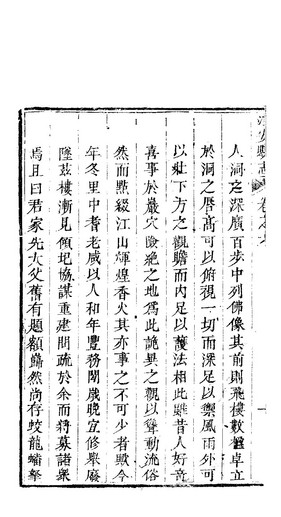 人洞之深廣百步中列佛像其前則飛樓數楹卓立
於洞之層高可以俯視一切而深足以禦風雨外可
以壯下方之觀瞻而内足以護法相此雖昔人好奇
喜事於嚴穴險絶之地爲此詭異之觀以聳動流俗
然而㸃綴江山輝煌香火其亦事之不可少者歟今
年冬里中耆老咸以人和年豐務閒歲晚宜修舉廢
墜茲樓漸見傾圮協謀重建問疏於余而將募諸衆
焉且曰君家先大父舊有題額巋然尚存蛟龍蟠拏